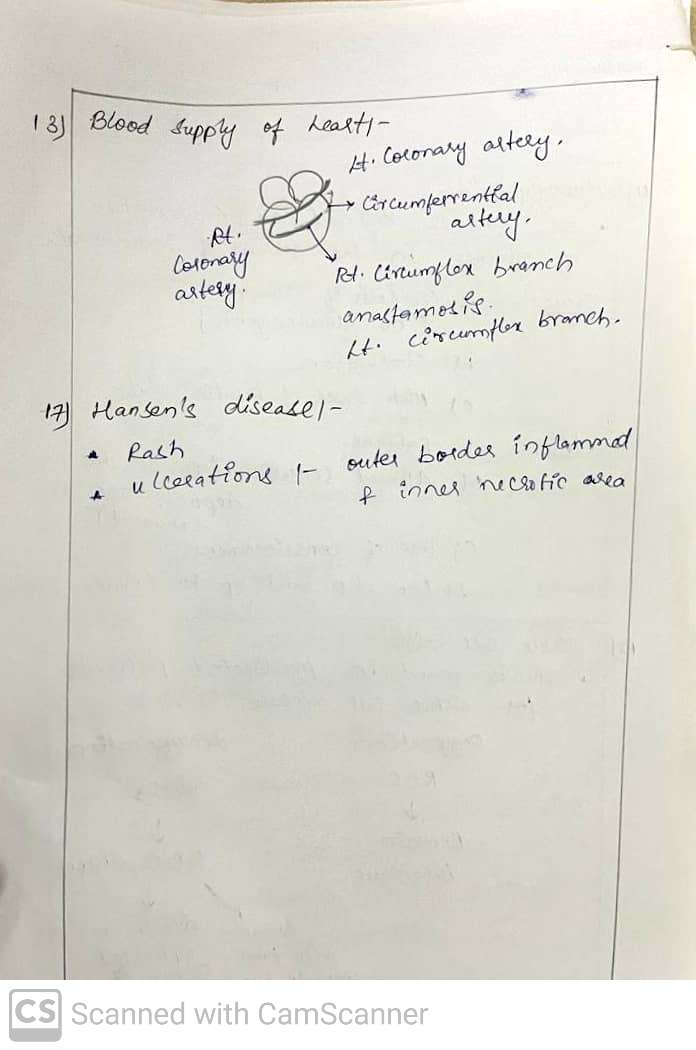 13) Blood supply of heart:-
Lt. Coronary artery.
→ Circumferrential
artery.
Rt.
Coronary
artery.
Rt. Circumflex branch
anastamosis.
Lt. circumflex branch.
17) Hansen's disease:-
* Rash
* ulcerations :- outer border inflammed
& inner necrotic area
CS Scanned with CamScanner